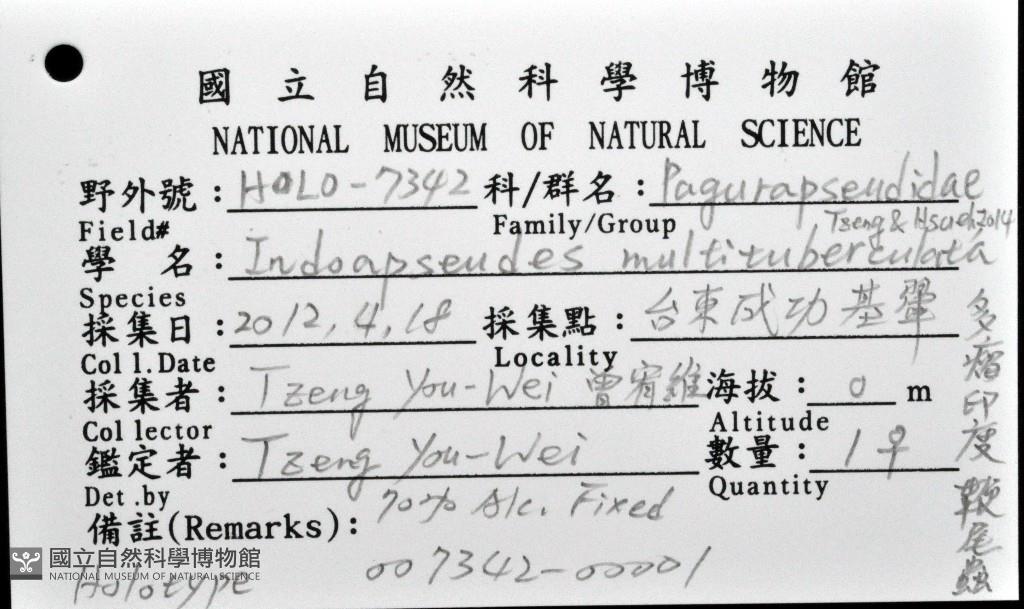 國立自然科學博物館
NATIONAL MUSEUM OF NATURAL SCIENCE
野外號：HOLO-7342 科/群名：Pagurapseudidae
Field# Family/Group Tzeng & Hsueh 2014
學 名：Indoapseudes multituberculata
Species
採集日：2012,4,18 採集點：台東成功基翬
Coll.Date Locality
採集者：Tzeng You-Wei 曾宥維 海拔：0 m
Collector Altitude
鑑定者：Tzeng You-Wei 數量：1♀
Det.by Quantity
備註(Remarks)：70% Alc. Fixed
007342-00001
Holotype
多瘤印度鞭尾蟲
國立自然科學博物館
NATIONAL MUSEUM OF NATURAL SCIENCE